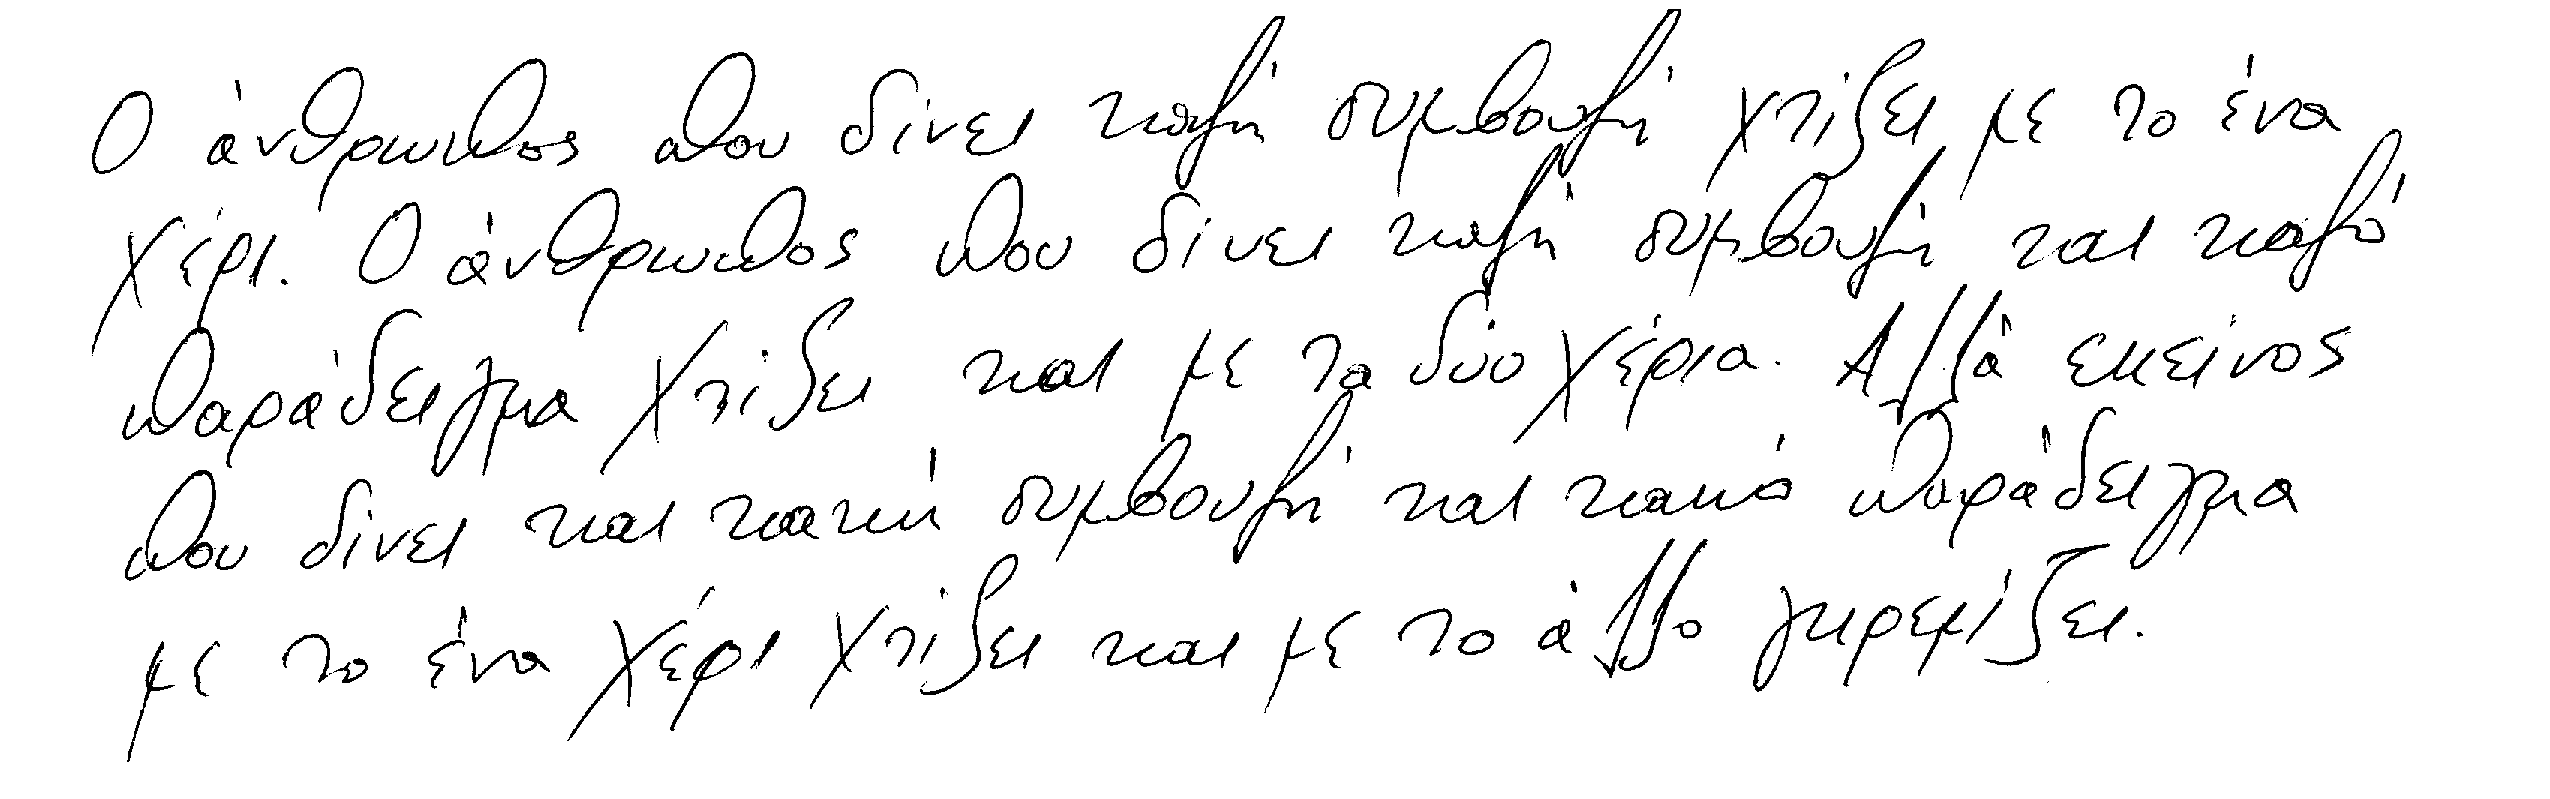 Ο άνθρωπος που δίνει καλή συμβουλή χτίζει με το ένα
χέρι. Ο άνθρωπος που δίνει καλή συμβουλή και καλό
παράδειγμα χτίζει και με τα δύο χέρια. Αλλά εκείνος
που δίνει και κακή συμβουλή και κακό παράδειγμα
με το ένα χέρι χτίζει και με το άλλο γκρεμίζει.